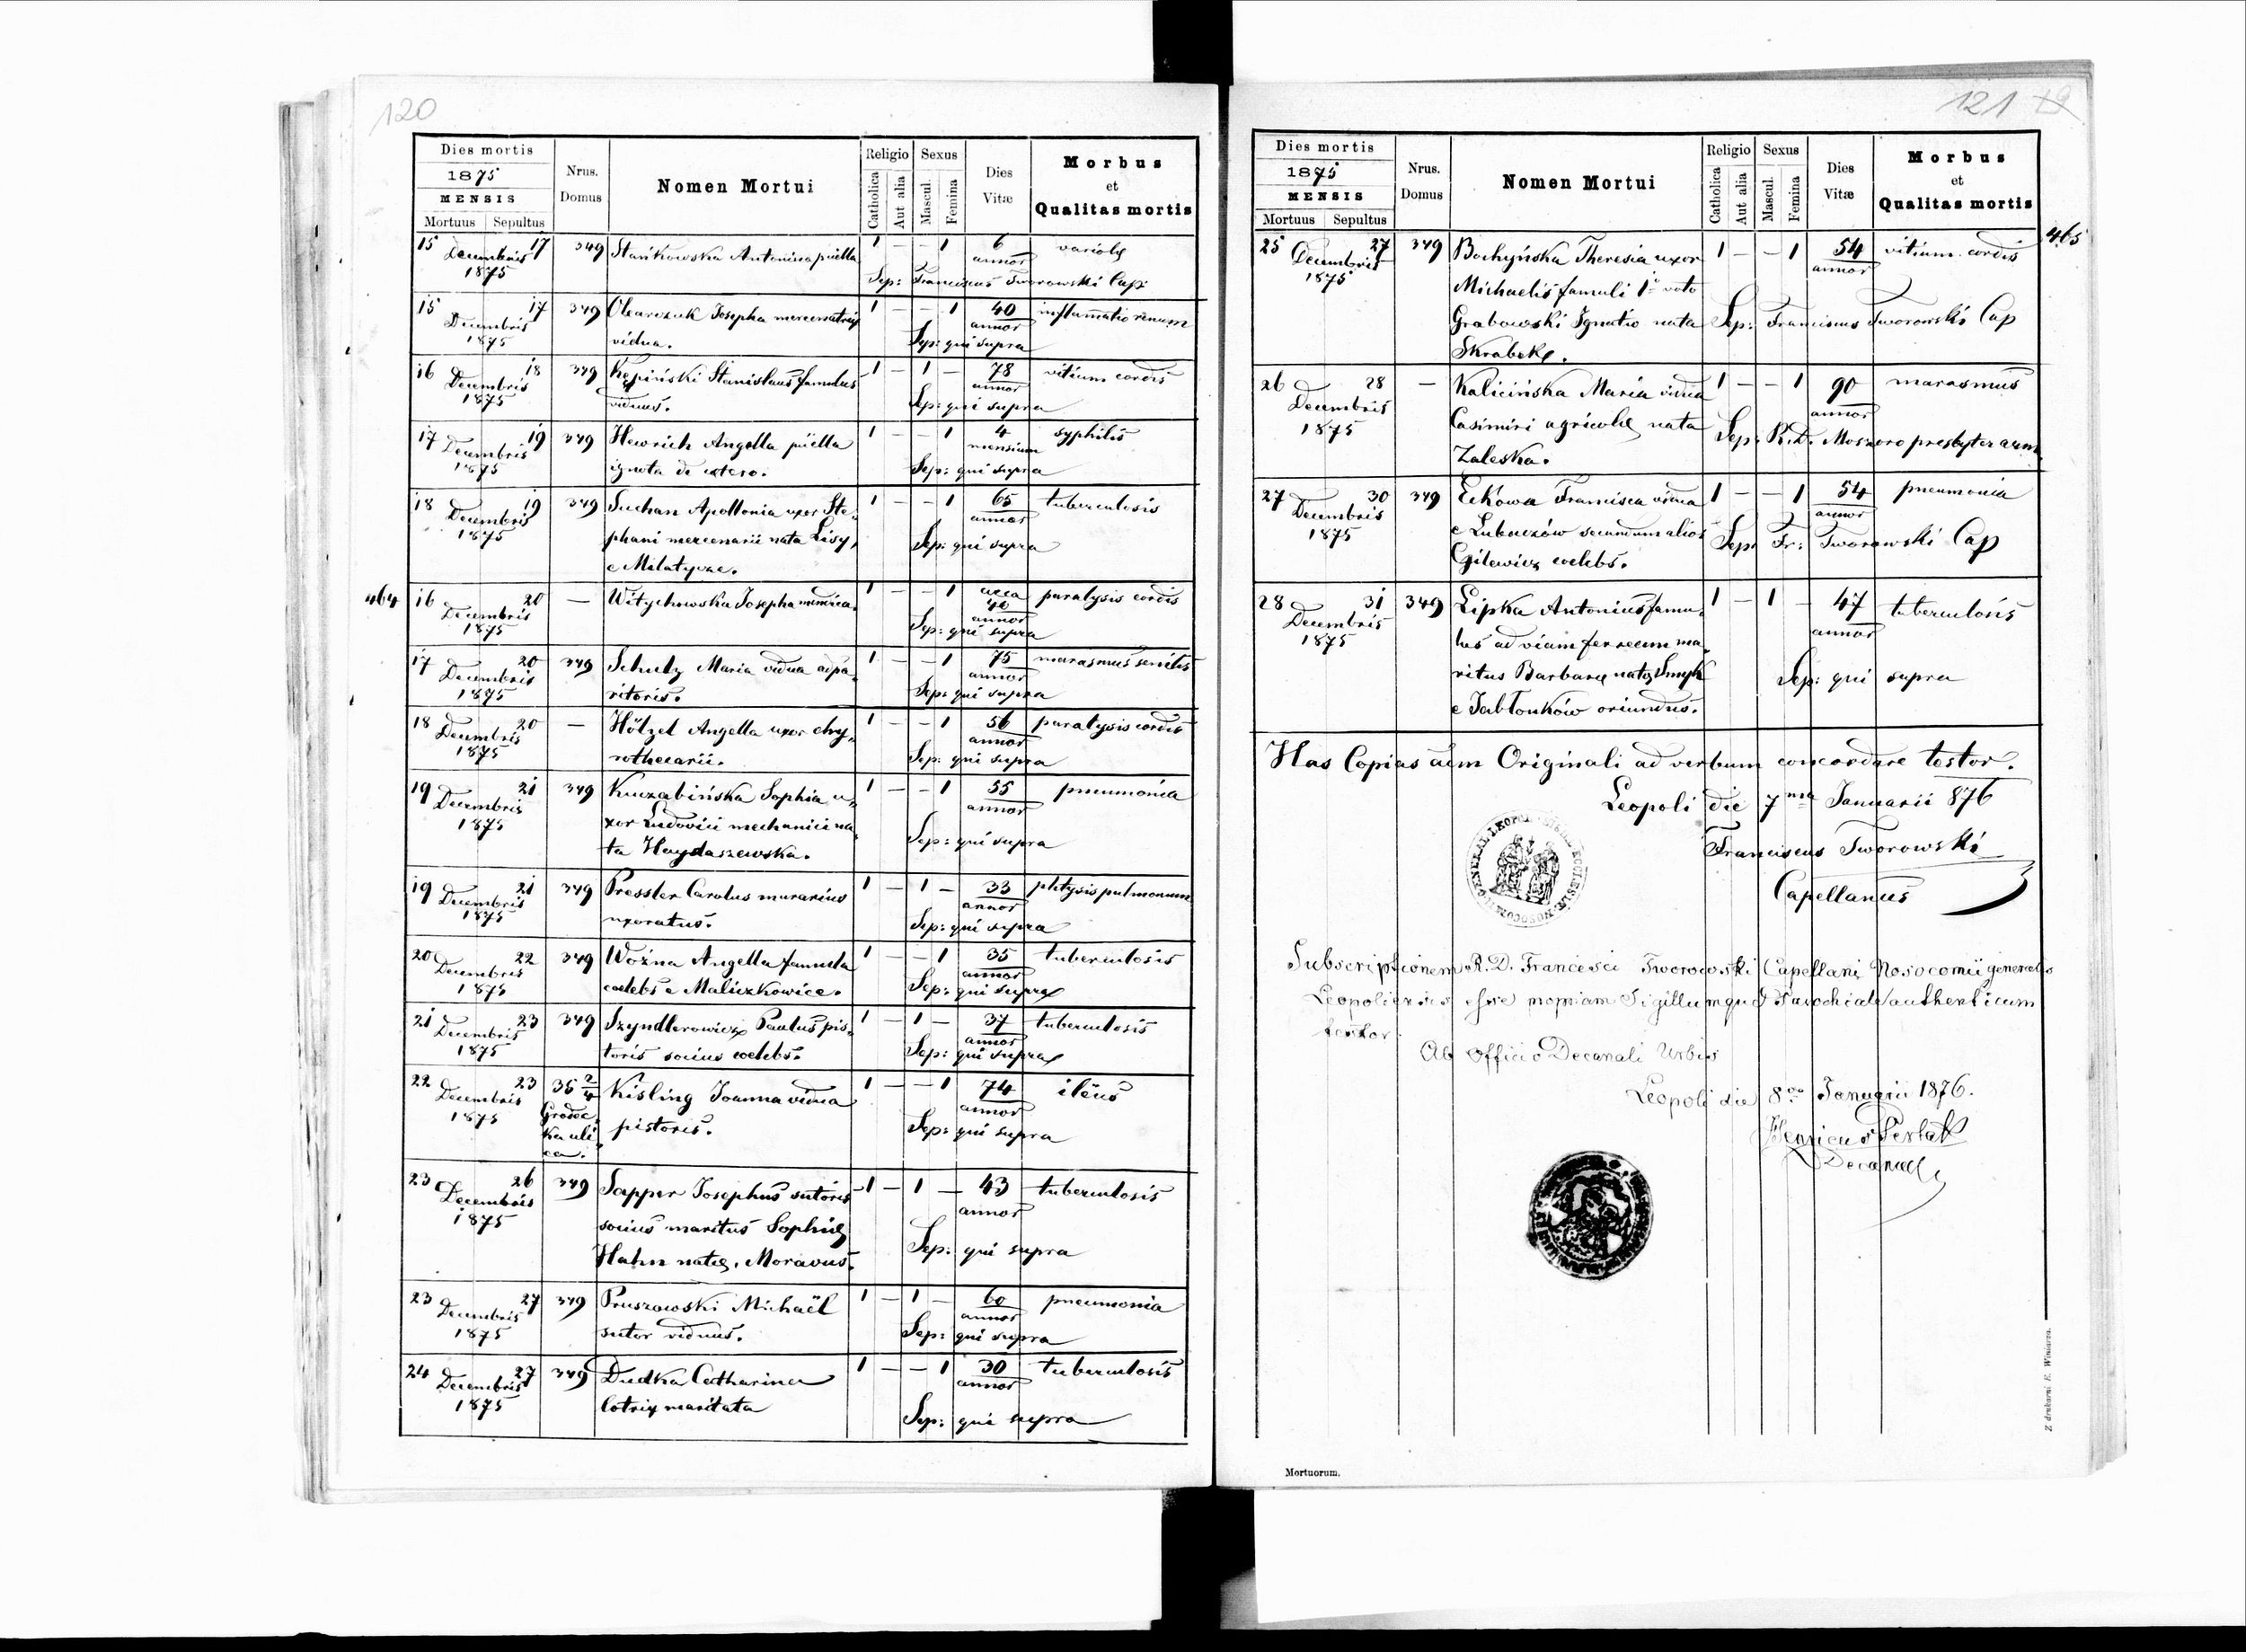 120
Dies mortis
1875
MENSIS
Mortuus Sepultus
Nrus. Domus
Nomen Mortui
Religio
Catholica Aut alia
Sexus
Mascul. Femina
Dies Vitæ
Morbus
et
Qualitas mortis
15 Decembris 17 349 Stańkowska Antonina puella 1 — — 1 6 variolę
1875 annor
Sep: Franciscus Tworowski Cap:
15 Decembris 17 349 Olearczuk Josepha mercenatrix 1 — — 1 40 inflamatio renum
1875 vidua. annor
Sep: qui supra
16 Decembris 18 349 Kępiński Stanislaus famulus 1 — 1 — 78 vitium cordis
1875 viduus. annor
Sep: qui supra
17 Decembris 19 349 Hewrich Angella puella 1 — — 1 4 syphilis
1875 ignota de cetero. mensium
Sep: qui supra
18 Decembris 19 349 Suchan Apollonia uxor Ste- 1 — — 1 65 tuberculosis
1875 phani mercenarii nata Lisy, annor
e Milatycze. Sep: qui supra
464
16 Decembris 20 — Witychowska Josepha mendica. 1 — — 1 circa 40 paralysis cordis
1875 annor
Sep: qui supra
17 Decembris 20 349 Schulz Maria vidua appa- 1 — — 1 75 marasmus senilis
1875 ritoris. annor
Sep: qui supra
18 Decembris 20 — Hölzel Angella uxor chy- 1 — — 1 56 paralysis cordis
1875 rothecarii. annor
Sep: qui supra
19 Decembris 21 349 Kuczabińska Sophia u- 1 — — 1 55 pneumonia
1875 xor Ludovici mechanici na- annor
ta Haydaszewska. Sep: qui supra
19 Decembris 21 349 Pressler Carolus murarius 1 — 1 — 33 phtysis pulmonum
1875 uxoratus. annor
Sep: qui supra
20 Decembris 22 349 Woźna Angella famula 1 — — 1 35 tuberculosis
1875 coelebs e Maliczkowice. annor
Sep: qui supra
21 Decembris 23 349 Szyndlerowicz Paulus pis- 1 — 1 — 37 tuberculosis
1875 toris socius coelebs. annor
Sep: qui supra
22 Decembris 23 35 2/4 Kisling Joanna vidua 1 — — 1 74 ileus
1875 Grodec- pistoris. annor
ka uli- Sep: qui supra
ca.
23 Decembris 26 349 Sapper Josephus sutoris 1 — 1 — 43 tuberculosis
1875 socius maritus Sophię annor
Hahn natę, Moravus. Sep: qui supra
23 Decembris 27 349 Pruszowski Michaël 1 — 1 — 60 pneumonia
1875 sutor viduus. annor
Sep: qui supra
24 Decembris 27 349 Dudka Catharina 1 — — 1 30 tuberculosis
1875 lotrix maritata annor
Sep: qui supra
121
Dies mortis
1875
MENSIS
Mortuus Sepultus
Nrus. Domus
Nomen Mortui
Religio
Catholica Aut alia
Sexus
Mascul. Femina
Dies Vitæ
Morbus
et
Qualitas mortis
465
25 Decembris 27 349 Bochyńska Theresia uxor 1 — — 1 54 vitium cordis
1875 Michaelis famuli 1º voto annor
Grabowski Ignatio nata Sep: Franciscus Tworowski Cap
Skrabekę.
26 Decembris 28 — Kalicińska Maria vidua 1 — — 1 90 marasmus
1875 Casimiri agricolę nata annor
Zaleska. Sep: R. D. Moszoro presbyter arm.
27 Decembris 30 349 Eckowa Francisca vidua 1 — — 1 54 pneumonia
1875 e Lubaczów secundum alios annor
Gilewicz coelebs. Sep: Fr: Tworowski Cap
28 Decembris 31 349 Lipka Antonius famu- 1 — 1 — 47 tuberculosis
1875 lus ad viam ferream ma- annor
ritus Barbarę natę Smyk Sep: qui supra
e Jabłonków oriundus.
Has Copias cum Originali ad verbum concordare testor.
Leopoli die 7ma Januarii 876
Franciscus Tworowski
Capellanus
Subscriptionem R. D. Francisci Tworowski Capellani Nosocomii generalis
Leopoliensis esse propriam Sigillumque Parochiale authenticum
testor.
Ab Officio Decanali Urbis
Leopoli die 8va Januarii 1876.
Decanus
Mortuorum.
Z drukarni E. Winiarza.